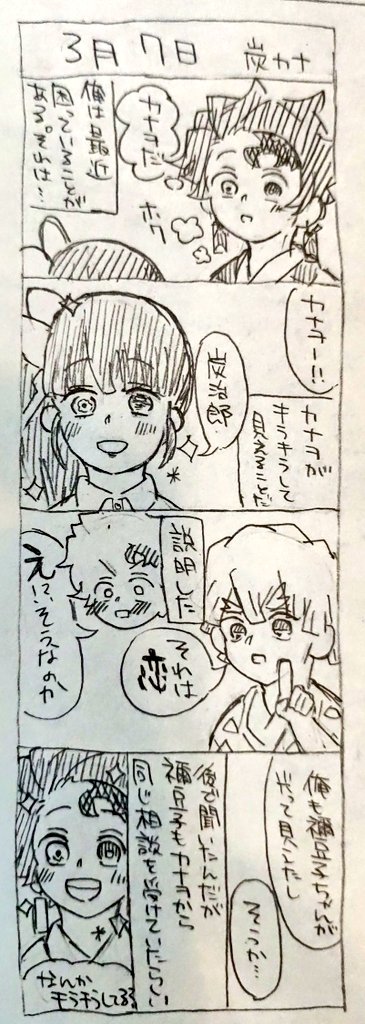 3月7日 炭カナ
カナヲだ
ホワ
俺は最近
困っていることが
ある。それは…
カナヲー!!
炭治郎
カナヲが
キラキラして
見えることだ
説明した
それは
恋
え!?そうなのか
俺も禰豆子ちゃんが
光って見えたし
そうか…
後で聞いたんだが
禰豆子もカナヲから
同じ相談を受けていたらしい
なんか
キラキラしてる